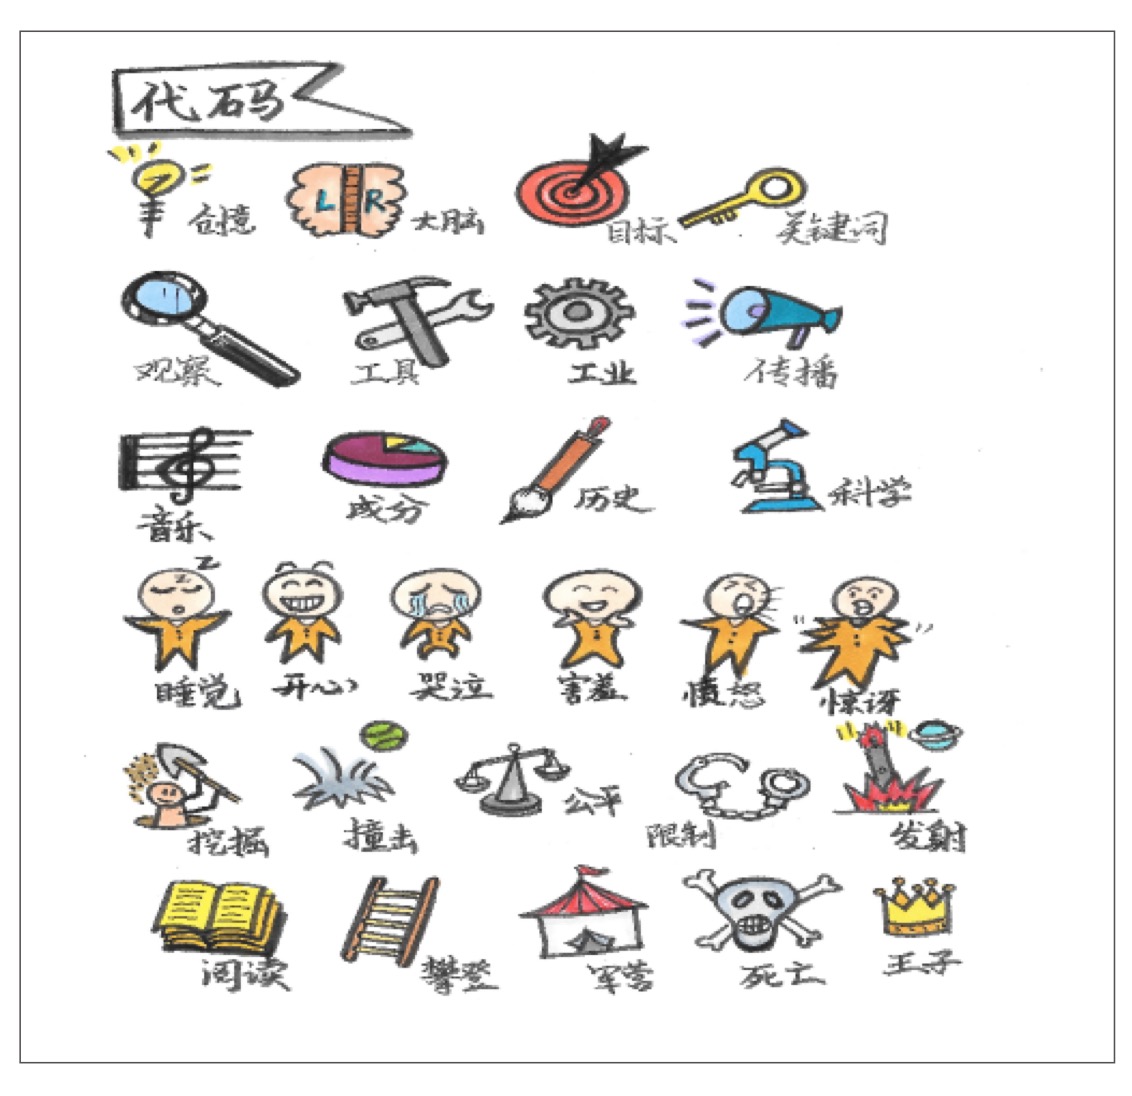 代码
创意 L R 大脑 目标 关键词
观察 工具 工业 传播
音乐 成分 历史 科学
z z
睡觉 开心 哭泣 害羞 愤怒 惊讶
挖掘 撞击 公平 限制 发射
阅读 攀登 军营 死亡 王子